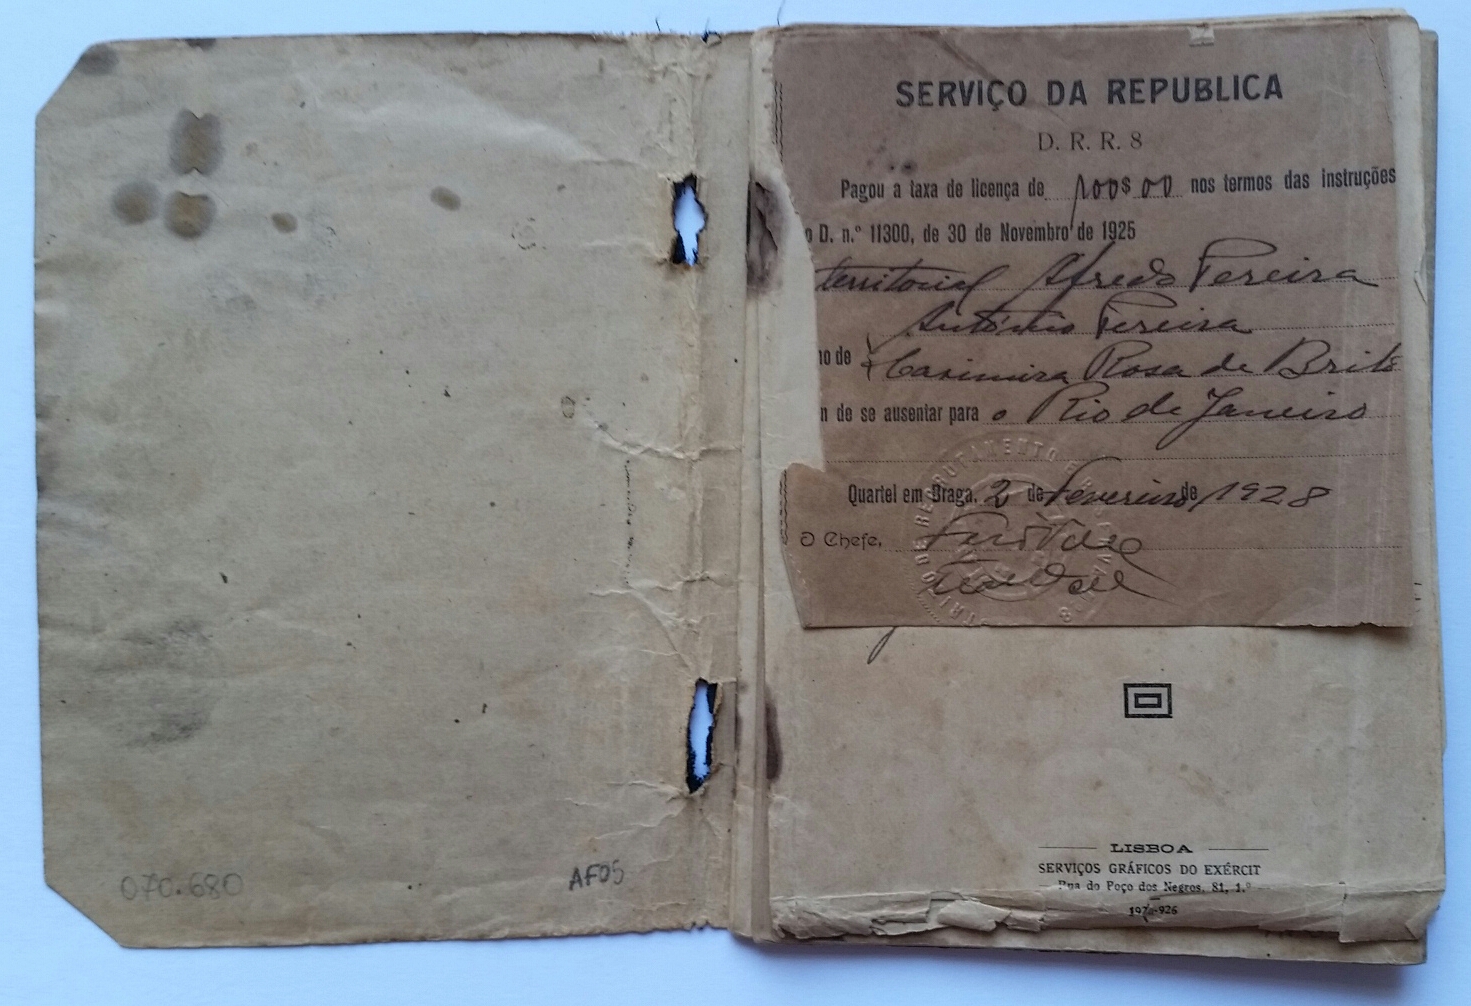 SERVIÇO DA REPUBLICA
D. R. R. 8
Pagou a taxa de licença de 100$00 nos termos das instruções
o D. n.º 11300, de 30 de Novembro de 1925
territorial Alfredo Pereira
António Pereira
ho de Casimira Rosa de Brito
n de se ausentar para o Rio de Janeiro
Quartel em Braga, 2 de Fevereiro de 1928
O Chefe,
070.680
AF05
LISBOA
SERVIÇOS GRÁFICOS DO EXÉRCIT
Rua do Poço dos Negros, 81, 1.º